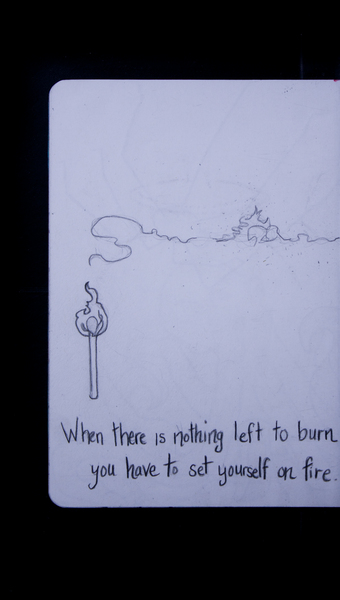 When there is nothing left to burn
you have to set yourself on fire.